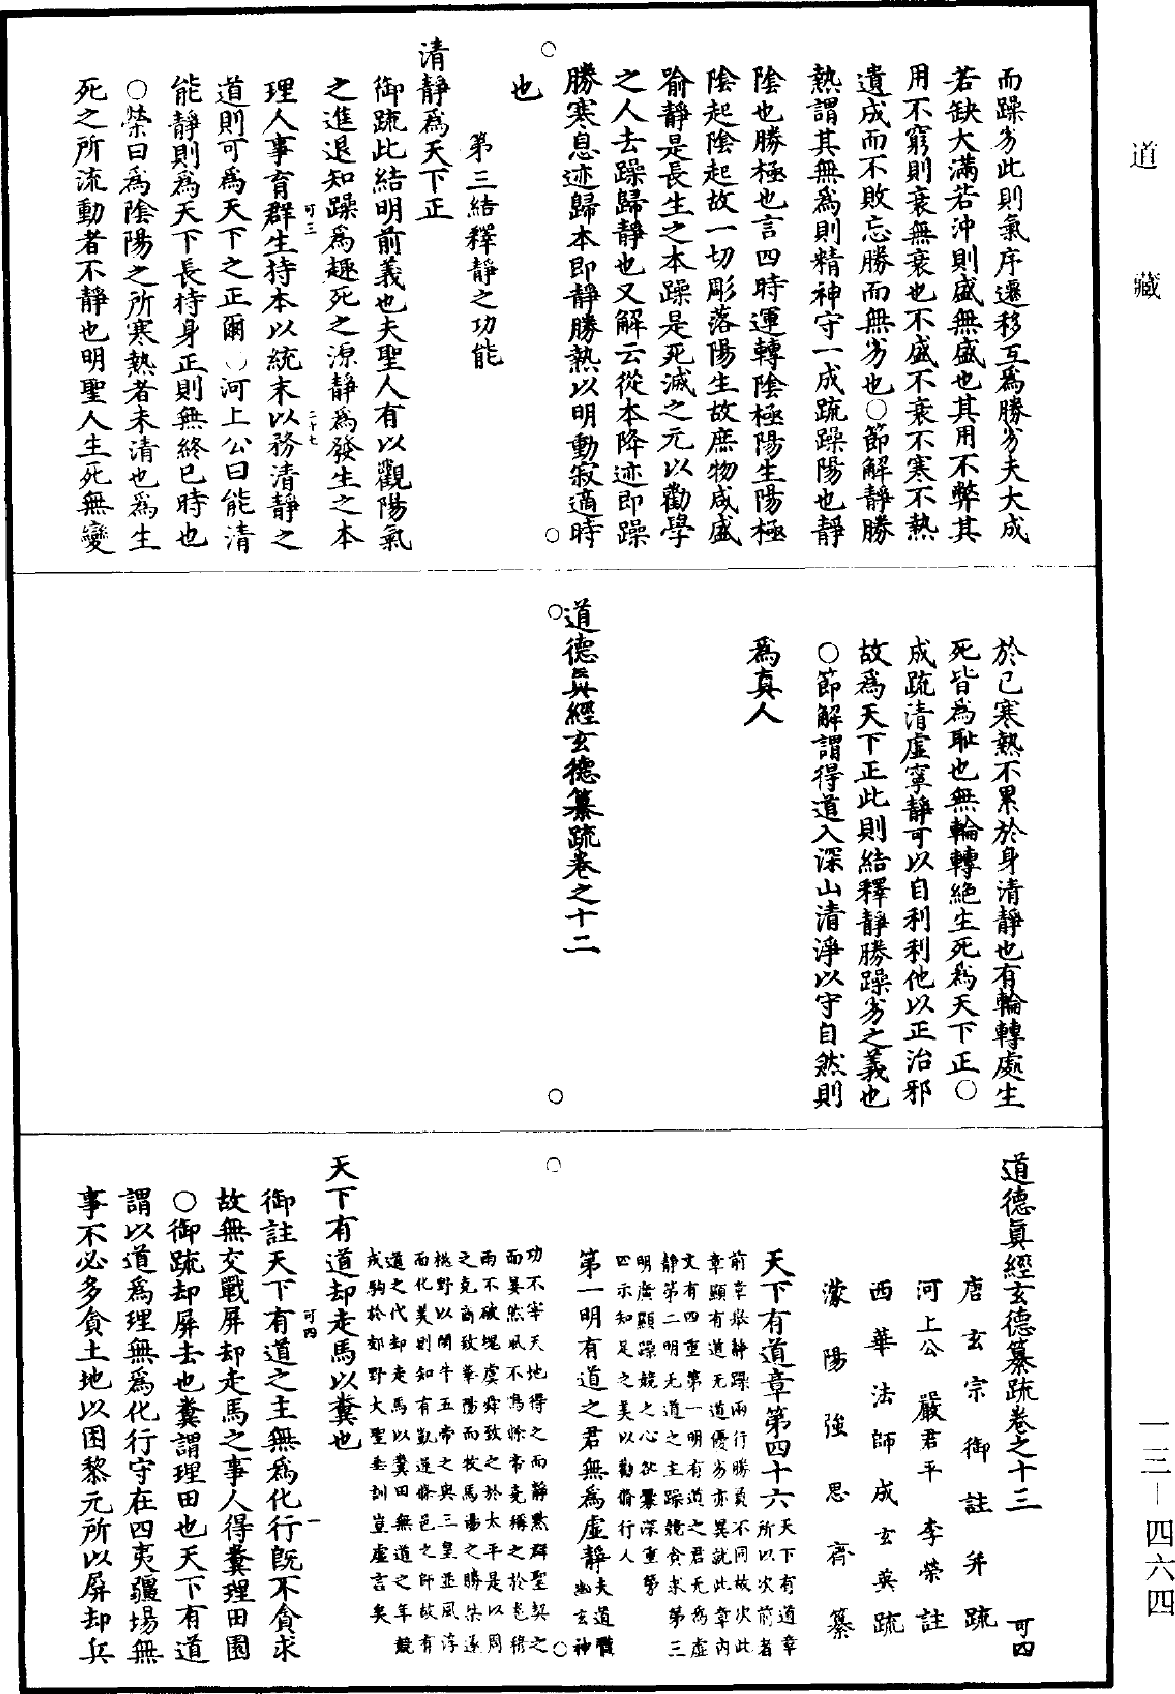 道藏
一三—四六四
而躁劣此則氣序遷移互為勝劣夫大成
若缺大滿若沖則盛無盛也其用不弊其
用不窮則衰無衰也不盛不衰不寒不熱
遺成而不敗忘勝而無劣也○節解靜勝
熱謂其無為則精神守一成疏躁陽也靜
陰也勝極也言四時運轉陰極陽生陽極
陰起陰起故一切彫落陽生故庶物咸盛
喻靜是長生之本躁是死滅之元以勸學
之人去躁歸靜也又解云從本降迹即躁
勝寒息迹歸本即靜勝熱以明動寂適時
也
第三結釋靜之功能
清靜為天下正
御疏此結明前義也夫聖人有以觀陽氣
之進退知躁為趣死之源靜為發生之本
可三
二十七
理人事育群生持本以統末以務清靜之
道則可為天下之正爾○河上公曰能清
能靜則為天下長持身正則無終已時也
○榮曰為陰陽之所寒熱者未清也為生
死之所流動者不靜也明聖人生死無變
於已寒熱不累於身清靜也有輪轉處生
死皆為恥也無輪轉絕生死為天下正○
成疏清虛寧靜可以自利利他以正治邪
故為天下正此則結釋靜勝躁劣之義也
○節解謂得道入深山清淨以守自然則
為真人
道德真經玄德纂疏卷之十二
道德真經玄德纂疏卷之十三 可四
唐玄宗御註并疏
河上公 嚴君平 李榮註
西華法師成玄英疏
濛陽強思齊纂
天下有道章第四十六
天下有道章
所以次前者
前章舉靜躁兩行勝負不同故次此
章顯有道无道優劣亦異就此章內
文有四重第一明有道之君无為虛
靜第二明无道之主躁競貪求第三
明廣顯躁競之心欲釁深重第
四示知足之美以勸脩行人
第一明有道之君無為虛靜
夫道雖
幽玄神
功不宰天地得之而靜默群聖契之
而宴然風不鳴條帝堯稱之於邕穆
雨不破塊虞舜致之於太平是以周
之克商致華陽而牧馬湯之勝桀遂
桃野以閑牛五帝之與三皇並風淳
而化美則知有凱還條邑之師故有
道之代却走馬以糞田無道之年競
戎駒於郊野大聖垂訓豈虛言矣
天下有道却走馬以糞也
御註天下有道之主無為化行既不貪求
可四
一
故無交戰屏却走馬之事人得糞理田園
○御疏却屏去也糞謂理田也天下有道
謂以道為理無為化行守在四夷疆場無
事不必多貪土地以困黎元所以屏却兵